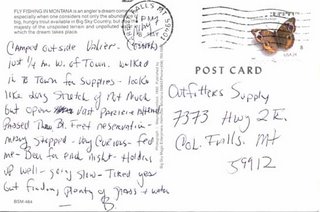 FLY FISHING IN MONTANA is an angler's dream come
especially when one considers not only the abundance
hungry trout available in Big Sky Country, but also
majesty of the unspoiled terrain and unpolluted waters
which the dream takes place.
Camped outside Valier.
just 1/4 m. W. of Town. walked
in to Town for Supplies - looks
like long Stretch of Not Much
but open Last
passed Thru Bl. Feet reservation -
many stopped - very Curious - fed
me - Beer for each Night - Holding
up well - going slow - Tired year
but finding plenty of grass & water
BSM-464
POST CARD
Outfitters Supply
7373 Hwy 2 E.
Col. Falls. Mt
59912